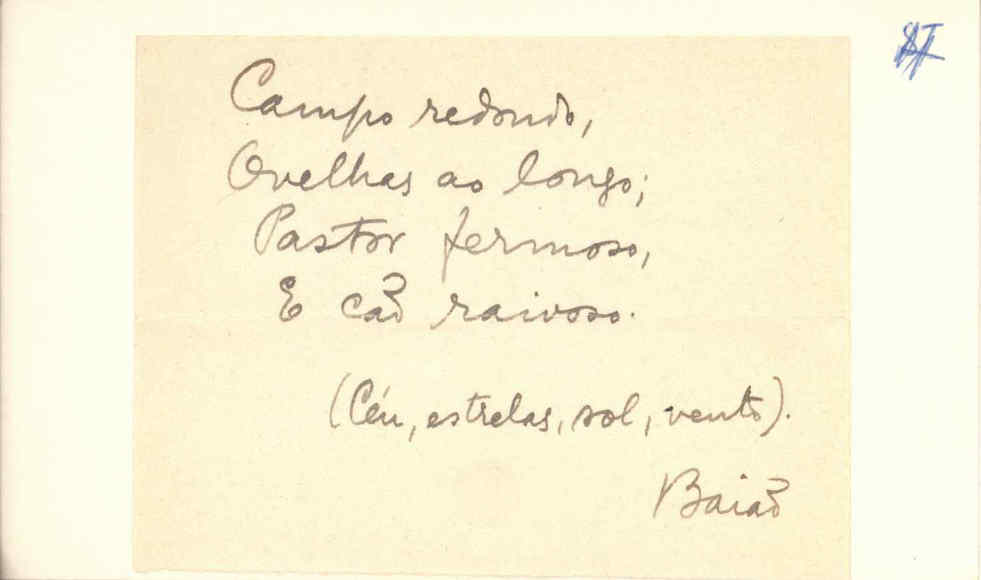 Campo redondo,
Ovelhas ao longo;
Pastor fermoso,
E cão raivoso.
(Céu, estrelas, sol, vento).
Baião